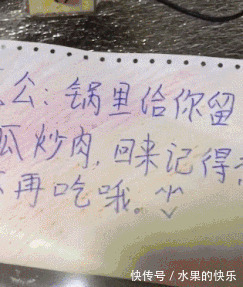 公：锅里给你留
瓜炒肉，回来记得
再吃哦。^_^
快传号/水果的快乐